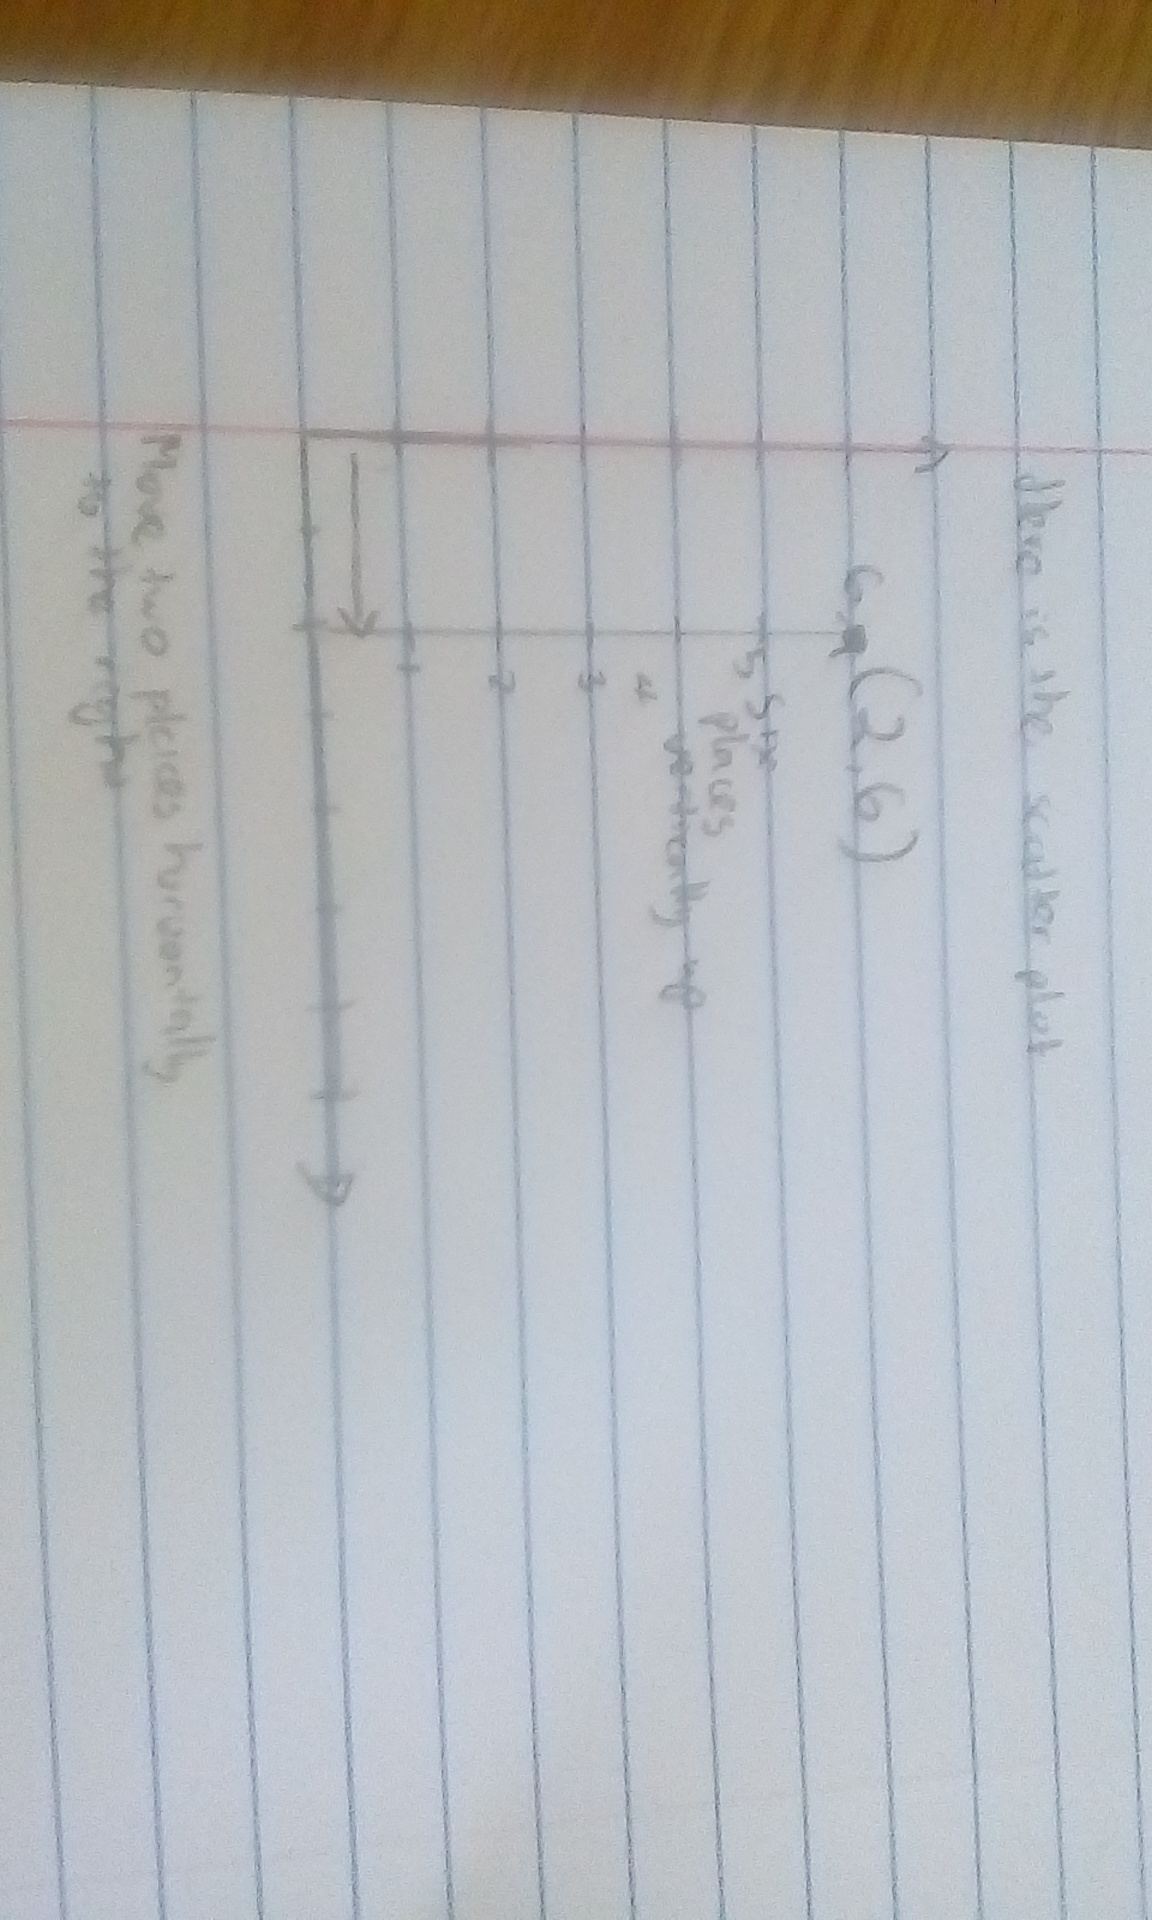 Here is the scatter plot
6 (2,6)
5 six
places
4 vertically up
3
2
1
Move two pleices hurizontally
to the right